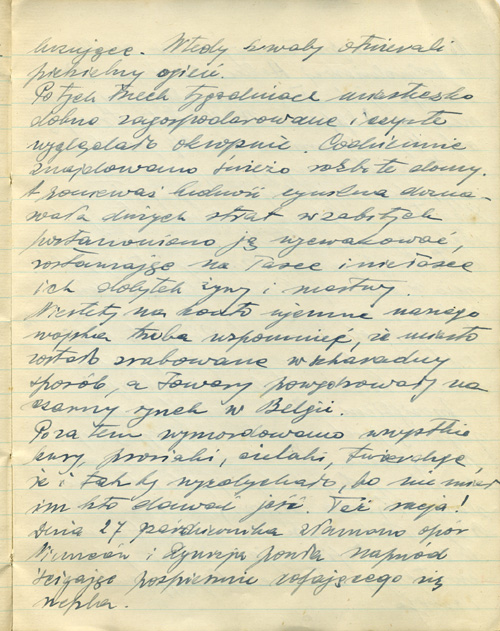 Wtedy szwaby otwierali
piekielny ogień.
Po tych trzech tygodniach miasteczko
dobrze zagospodarowane i czyste
wyglądało okropnie. Codziennie
znajdowano świeżo rozbite domy.
A ponieważ ludność cywilna dozna-
wała dużych strat w zabitych
postanowiono ją wyewakować,
zostawiając na łasce i niełasce
ich dobytek żywy i martwy.
Niestety na konto ujemne naszego
wojska trzeba wspomnieć, że miasto
zostało zrabowane w skaradny
sposób, a towary powędrowały na
czarny rynek w Belgii.
Poza tem wymordowano wszystkie
kury, prosiaki, cielaki, twierdząc,
że i tak by wyzdychało, bo nie miał
im kto dawać jeść. Też racja!
Dnia 27 października złamano opór
Niemców i Dywizja poszła naprzód
ścigając pospiesznie cofającego się
szkopa.